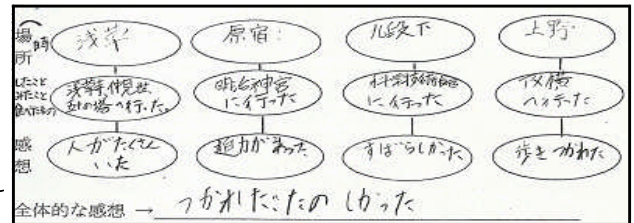 場所 時 浅草 原宿 九段下 上野
したこと
みたこと
食べたもの
浅草寺、仲見世、
五重の塔へ行った。
明治神宮
に行った
科学技術館
に行った
アメ横
へ行った
感想
人がたくさん
いた
迫力があった
すばらしかった
歩きつかれた
全体的な感想 → つかれたけどたのしかった